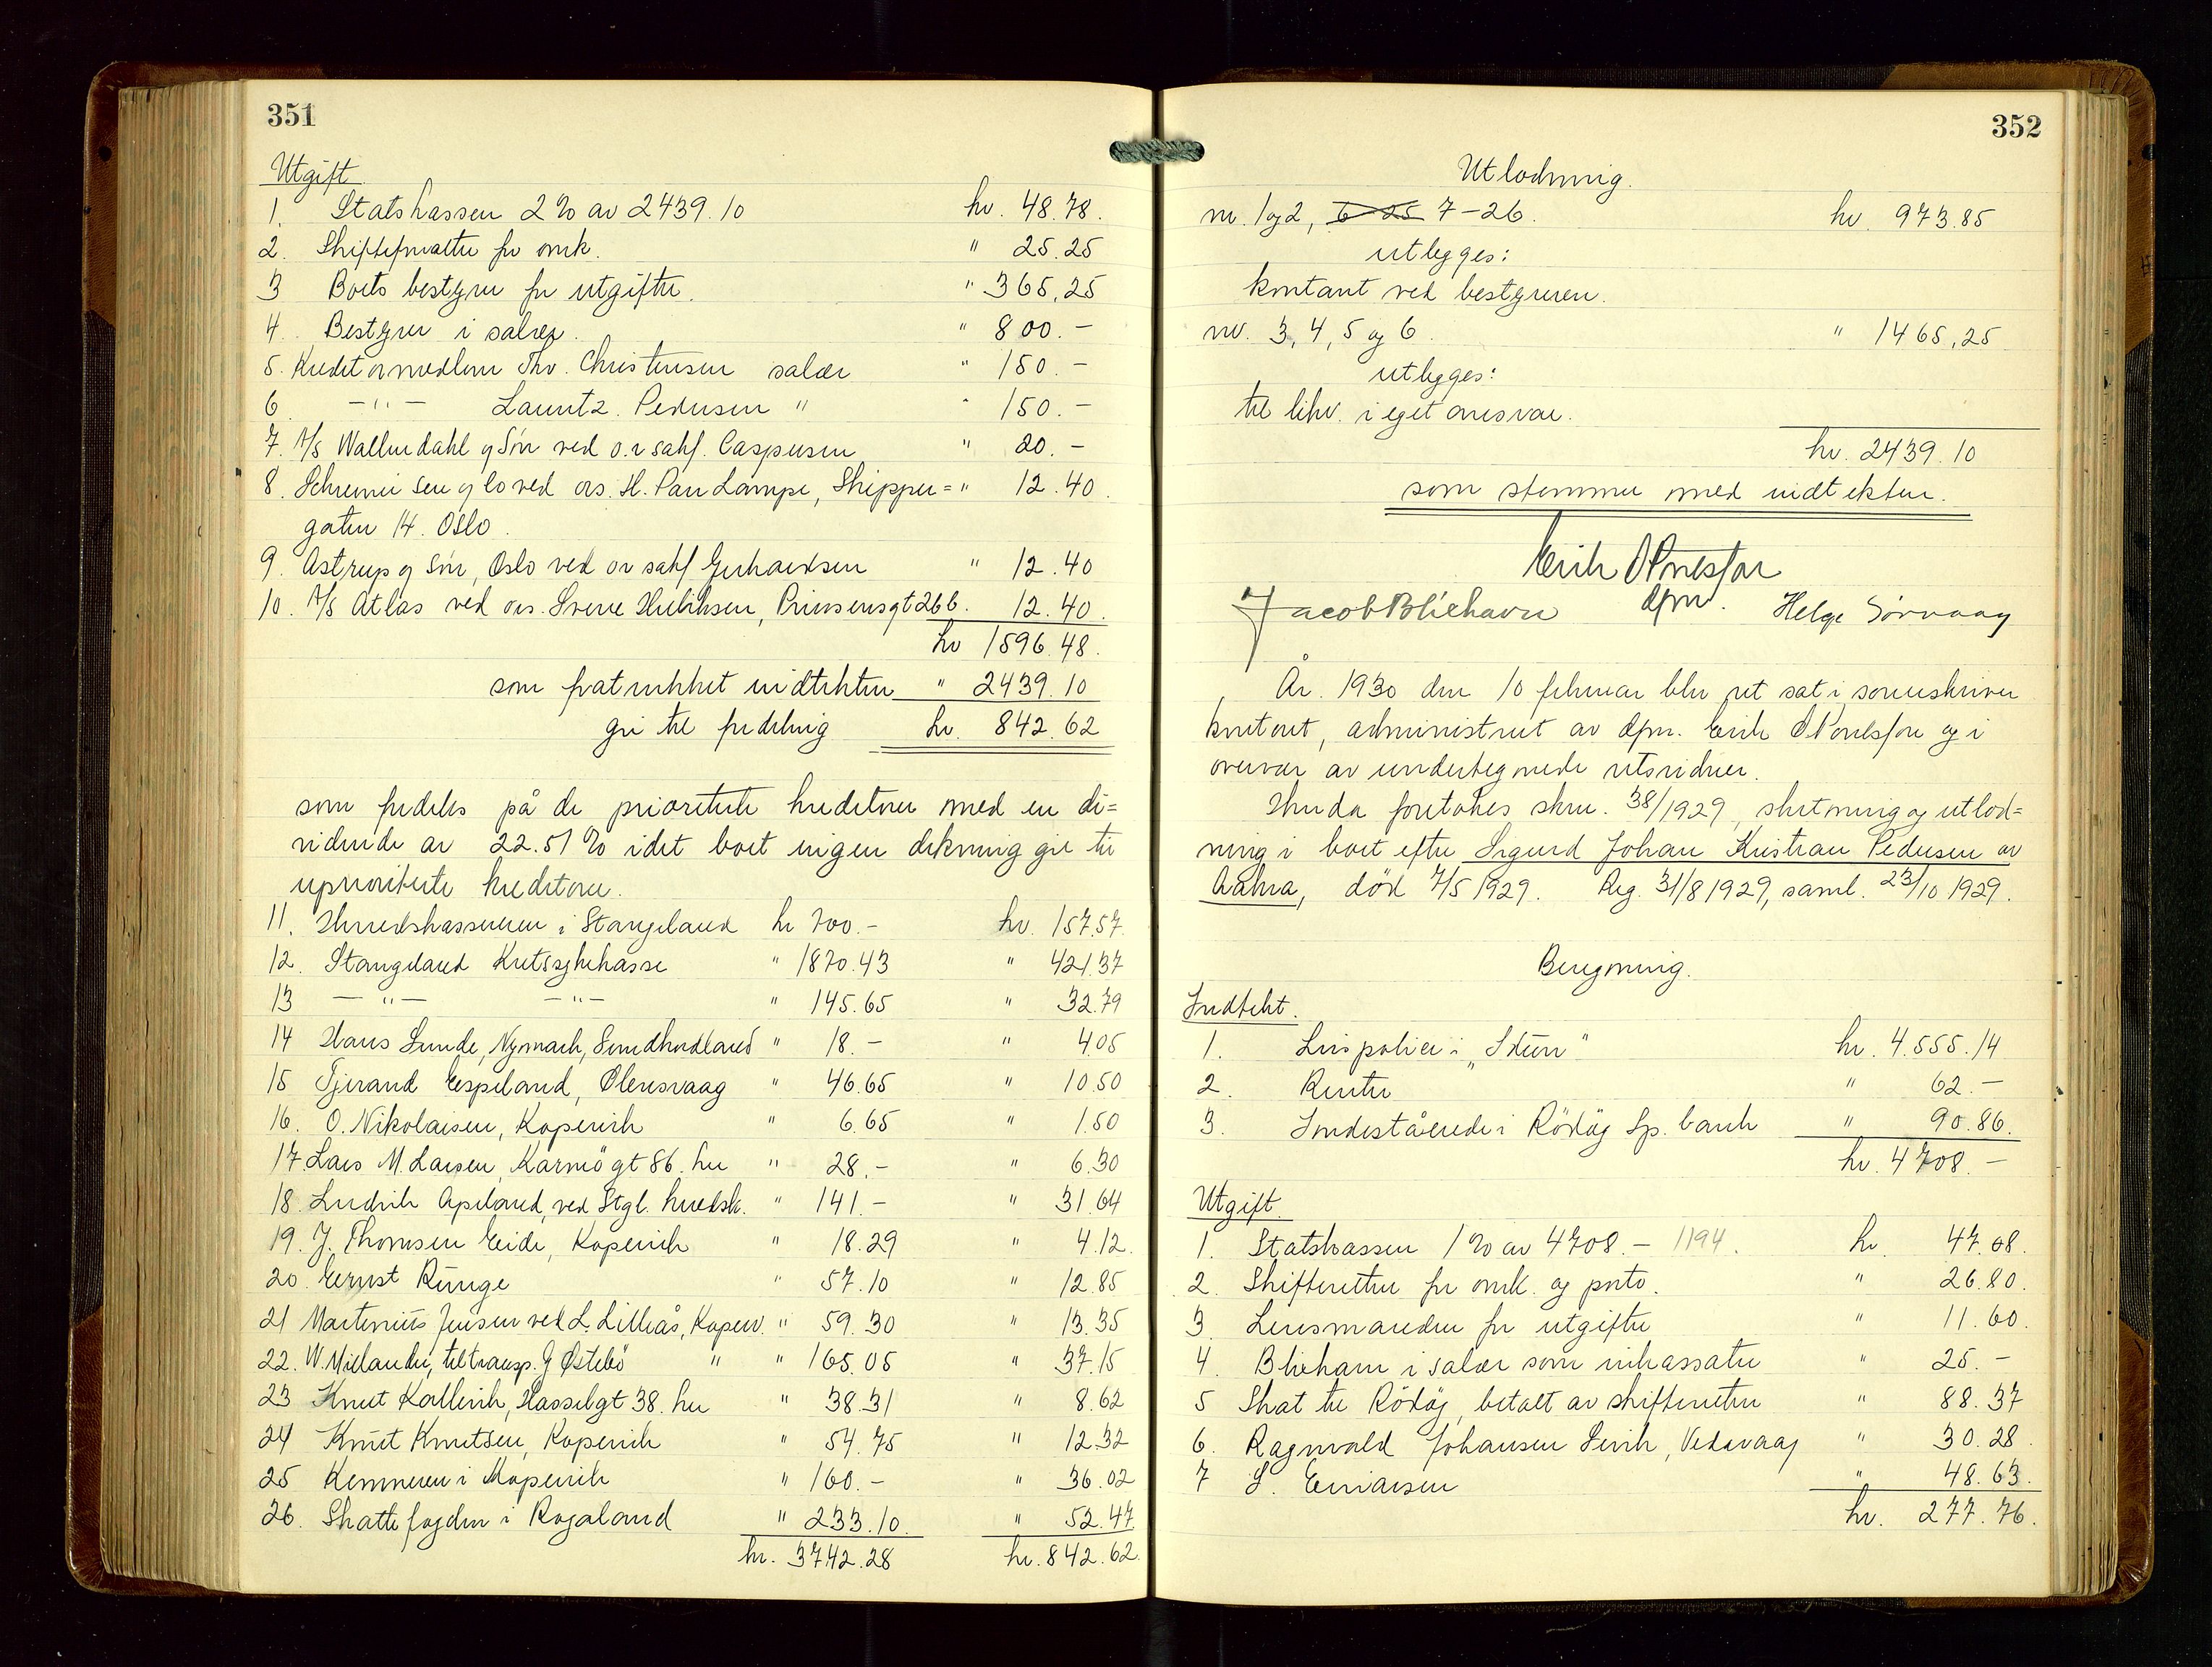 351
Utgift
1. Statskassen 2% av 2439.10 kr. 48.78.
2. Skifteforvalter for omk. " 25.25
3 Boets bestyrer for utgifter. " 365,25
4. Bestyrer i salær. " 800.-
5. Kreditormedlem Thv. Christensen salær " 150.-
6 -"- Lauritz. Pedersen " " 150.-
7. A/S Wallendahl og Søn ved o.r sakf. Caspersen " 20.-
8. Schreiner sen og Co ved ors. H. Pau Lampe, Skipper= " 12.40.
gaten 14. Oslo.
9. Astrup og Søn, Oslo ved or sakf Gerhardsen " 12.40
10. A/S Atlas ved ors. Sverre Henriksen, Prinsensgt 26 b. 12.40.
kr 1596.48.
som fratrukket indtekten " 2439.10
gir til fordeling kr. 842.62
som fordeles på de prioriterte kreditorer med en di=
vidende av 22.51% idet boet ingen dekning gir til
uprioriterte kreditorer.
11. Herredskassereren i Stangeland kr 700.- kr. 157.57.
12. Stangeland Kretssykekasse " 1870.43 " 421.37
13 -"- -"- " 145.65 " 32.79
14 Hans Lunde, Nymark, Sundhordland " 18.- " 4.05
15 Tjerand Espeland, Ølensvaag " 46.65 " 10.50
16. O. Nikolaisen, Kopervik " 6.65 " 1.50
17. Lars M. Larsen, Karmögt 86. her " 28.- " 6.30
18. Ludvik Apeland, ved Stgl. herredsk. " 141.- " 31.64
19. J. Thomsen Eide, Kopervik " 18.29 " 4.12.
20. Ernst Runge " 57.10 " 12.85
21 Martinius Jensen ved L. Lillås, Koperv. " 59.30 " 13.35
22. W. Mielander, til transp. G Østebö " " 165.05 " 37.15
23 Knut Kallevik, Hasselgt 38. her " 38.31 " 8.62
24 Knut Knutsen, Kopervik " 54.75 " 12.32
25 Kemneren i Kopervik " 160.- " 36.02
26. Skattefogden i Rogaland " 233.10. " 52.47
kr. 3742.28 kr. 842.62.
352
Utlodning.
nr. 1 og 2, 6-25 7-26. kr. 973.85
utlegges:
kontant ved bestyreren.
nr. 3, 4, 5 og 6. " 1465,25
utlegges:
til likv. i eget ansvar.
kr. 2439.10
som stemmer med indtekten.
Erik
dfm.
Jacob Blikhavn Helge Sørvaag
År. 1930 den 10 februar blev ret sat i sorenskriver
kontoret, administrert av dfm. Erik og i
overvær av undertegnede retsvidner.
Herda foretokes skrn. 38/1929, slutning og utlod=
ning i boet efter Sigurd Johan Kristian Pedersen av
Aakra, død 7/5 1929. Reg. 31/8 1929, saml. 23/10 1929.
Beregning.
Indtekt.
1. Livspolise i "Skien" kr. 4.555.14
2. Renter " 62.-
3. Indestående i Rödög Sp. bank " 90.86.
kr. 4708.-
Utgift.
1. Statskassen 1% av 4708.- 1194. kr. 47.08.
2. Skifteretten for omk. og porto. " 26.80.
3. Lensmanden for utgifter " 11.60.
4 Blikhavn i salær som inkassator " 25.-
5 Skat til Rödög, betalt av skifteretten " 88.37
6. Ragnvald Johansen Sevik, Vedavaag " 30.28.
7 S. Einarsen " 48.63.
kr. 277.76.